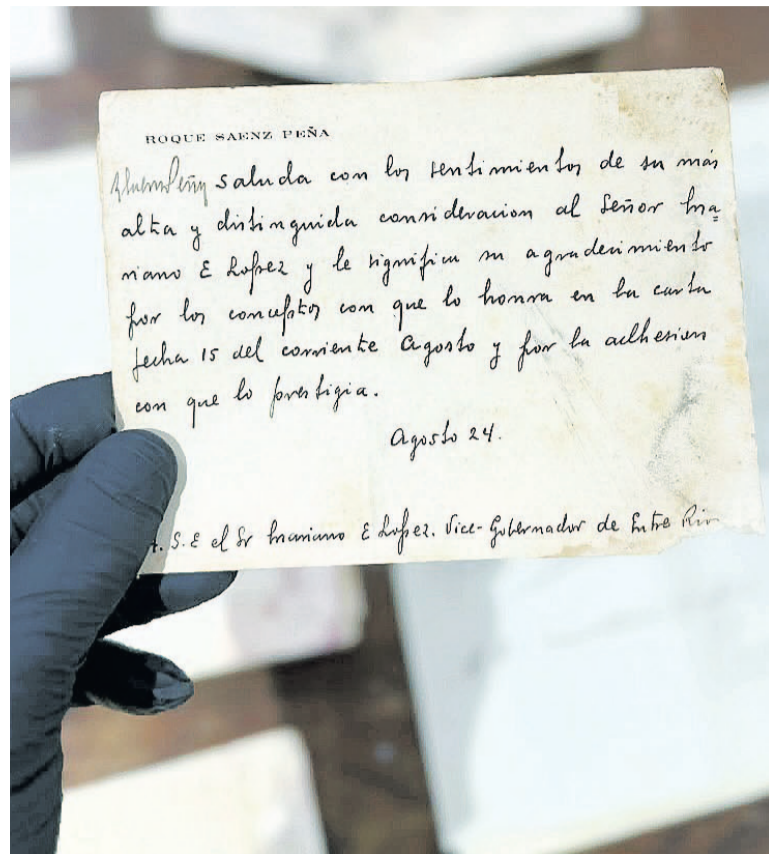 ROQUE SAENZ PEÑA
RSaenzPeña saluda con los sentimientos de su más
alta y distinguida consideracion al Señor Ma=
riano E Lopez y le significa su agradecimiento
por los conceptos con que lo honra en la carta
fecha 15 del corriente Agosto y por la adhesion
con que lo prestigia.
Agosto 24.
A. S. E el Sr Mariano E Lopez. Vice-Gobernador de Entre Rios